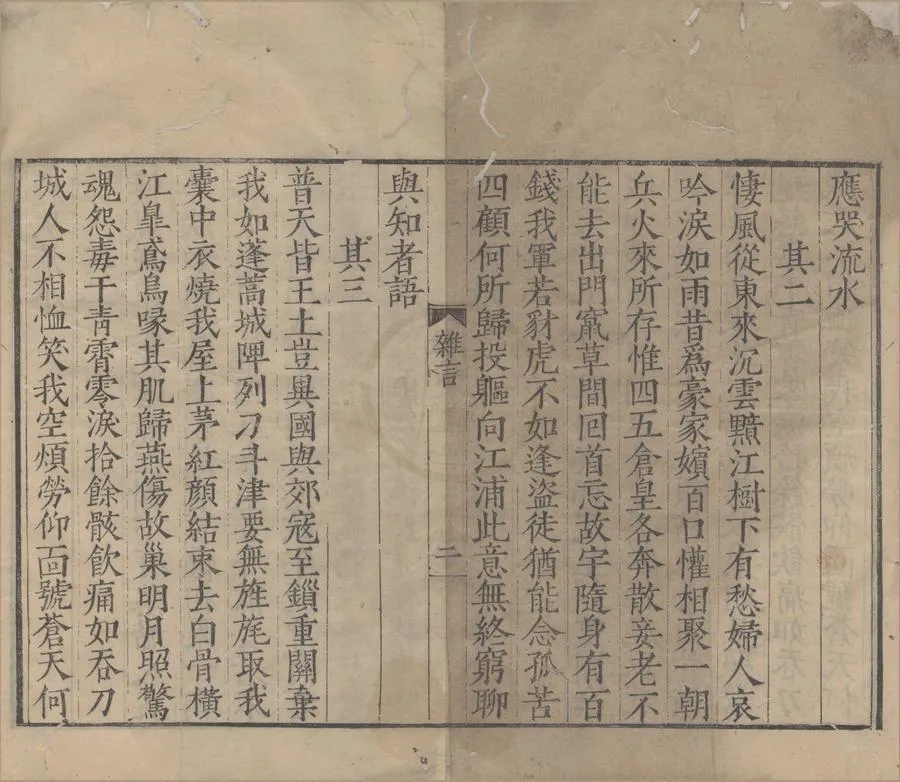 應哭流水
其二
悽風從東來沉雲黯江樹下有愁婦人哀
吟淚如雨昔爲豪家嬪百口懽相聚一朝
兵火來所存惟四五倉皇各奔散妾老不
能去出門竄草間回首忘故宇隨身有百
錢我軍若豺虎不如逢盜徒猶能念孤苦
四顧何所歸投軀向江浦此意無終窮聊
雜言
二
與知者語
其三
普天皆王土豈異國與郊寇至鎖重關棄
我如蓬蒿城陴列刀斗津要無旌旄取我
囊中衣燒我屋上茅紅顏結束去白骨橫
江臯鳶鳥喙其肌歸燕傷故巢明月照驚
魂怨毒干靑霄零淚拾餘骸飮痛如吞刀
城人不相恤笑我空煩勞仰面號蒼天何